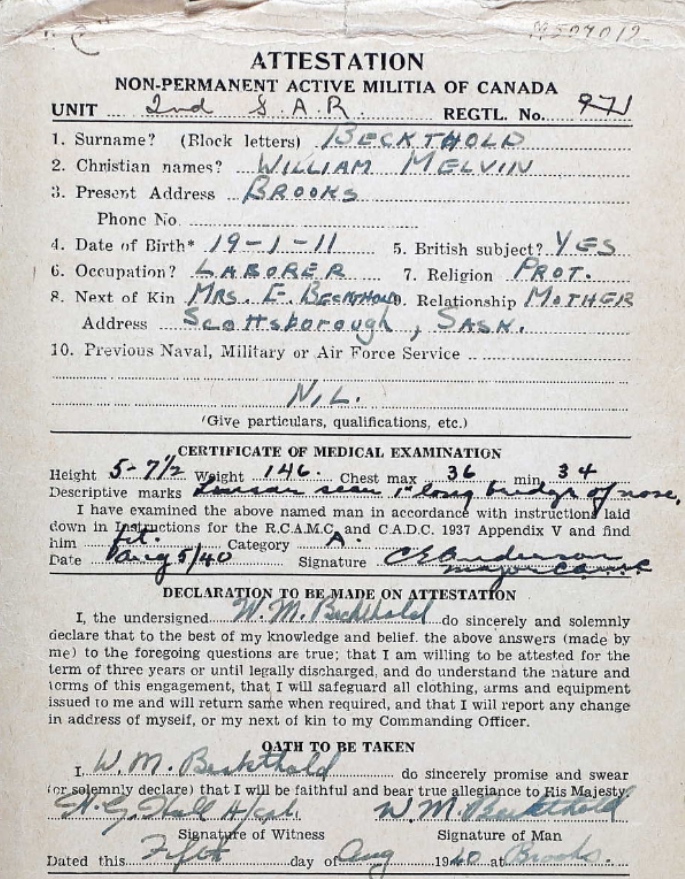 "C" M507019
ATTESTATION
NON-PERMANENT ACTIVE MILITIA OF CANADA
UNIT 2nd S.A.R. REGTL. No. 971
1. Surname? (Block letters) BECKTHOLD
2. Christian names? WILLIAM MELVIN
3. Present Address BROOKS
Phone No.
4. Date of Birth* 19-1-11 5. British subject? YES
6. Occupation? LABORER 7. Religion PROT.
8. Next of Kin MRS. E. BECKTHOLD 9. Relationship MOTHER
Address Scottsborough, SASK.
10. Previous Naval, Military or Air Force Service
NIL.
(Give particulars, qualifications, etc.)
CERTIFICATE OF MEDICAL EXAMINATION
Height 5-7½ Weight 146. Chest max 36 min 34
Descriptive marks Linear scar 1" long bridge of nose.
I have examined the above named man in accordance with instructions laid
down in Instructions for the R.C.A.M.C. and C.A.D.C. 1937 Appendix V and find
him fit. Category A.
Date Aug 5/40 Signature C E Anderson
major
DECLARATION TO BE MADE ON ATTESTATION
I, the undersigned W. M. Beckthold do sincerely and solemnly
declare that to the best of my knowledge and belief. the above answers (made by
me) to the foregoing questions are true; that I am willing to be attested for the
term of three years or until legally discharged, and do understand the nature and
terms of this engagement, that I will safeguard all clothing, arms and equipment
issued to me and will return same when required, and that I will report any change
in address of myself, or my next of kin to my Commanding Officer.
OATH TO BE TAKEN
I, W. M. Beckthold do sincerely promise and swear
(or solemnly declare) that I will be faithful and bear true allegiance to His Majesty.
Hall W. M. Beckthold
Signature of Witness Signature of Man
Dated this Fifth day of Aug 1940 at Brooks.